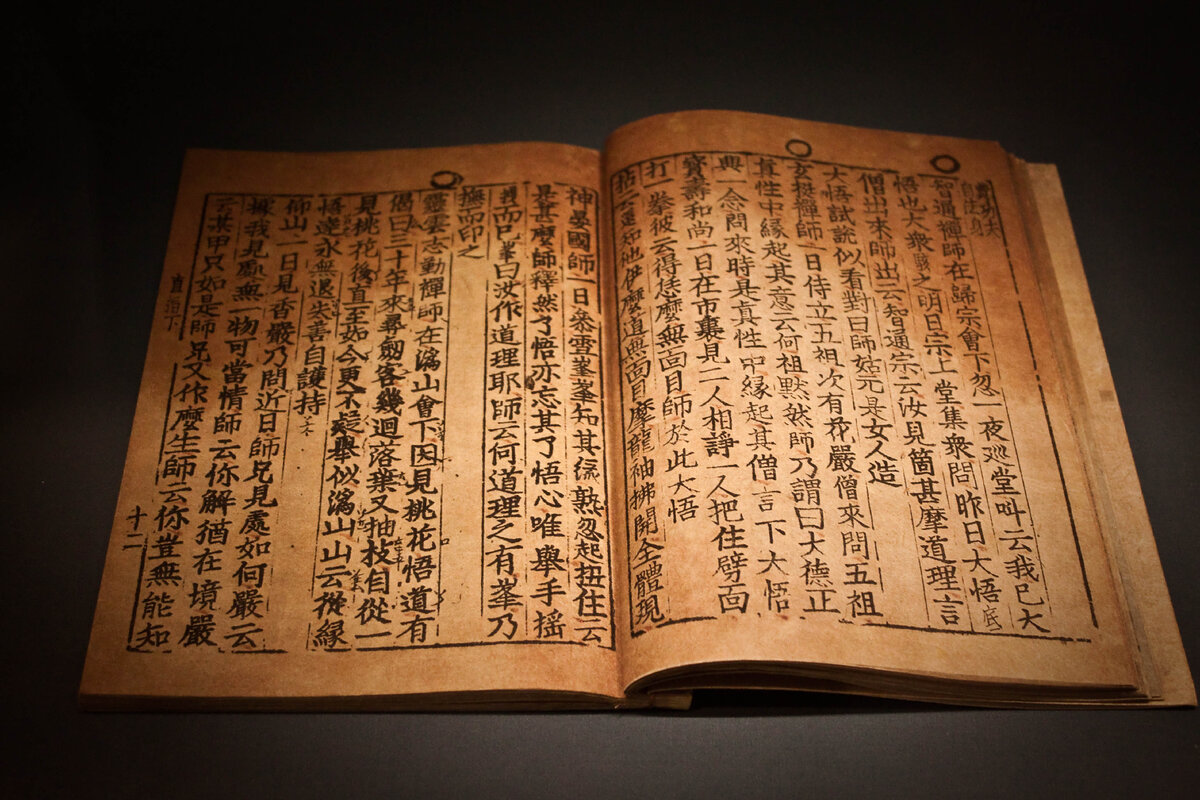 智通禪師在歸宗會下忽一夜巡堂叫云我已大
悟也大衆駭之明日宗上堂集衆問昨日大悟底
僧出來師出云智通宗云汝見箇甚摩道理言
大悟試說似看對曰師姑元是女人造
玄挺禪師一日侍立五祖次有華嚴僧來問五祖
真性中緣起其意云何祖黙然師乃謂曰大德正
興一念問來時是眞性中緣起其僧言下大悟
寶壽和尚一日在市裏見二人相諍一人把住劈面
打一拳彼云得恁麽無面目師於此大悟
拈云還知他伊麽道無面目摩龍袖拂開全體現
神晏國師一日叅雪峯峯知其緣熟忽起扭住云
是甚麽師釋然了悟亦忘其了悟心唯擧手搖
曳而已峯曰汝作道理耶師云何道理之有峯乃
撫而印之
靈雲志勤禪師在潙山會下因見桃花悟道有
偈曰三十年來尋劔客幾迴落葉又抽枝自從一
見桃花後直至如今更不疑擧似潙山山云從緣
悟達永無退失善自護持
仰山一日見香嚴乃問近日師兄見處如何嚴云
據我見處無一物可當情師云你解猶在境嚴
云某甲只如是師兄又作麽生師云你豈無能知
直指下
十二